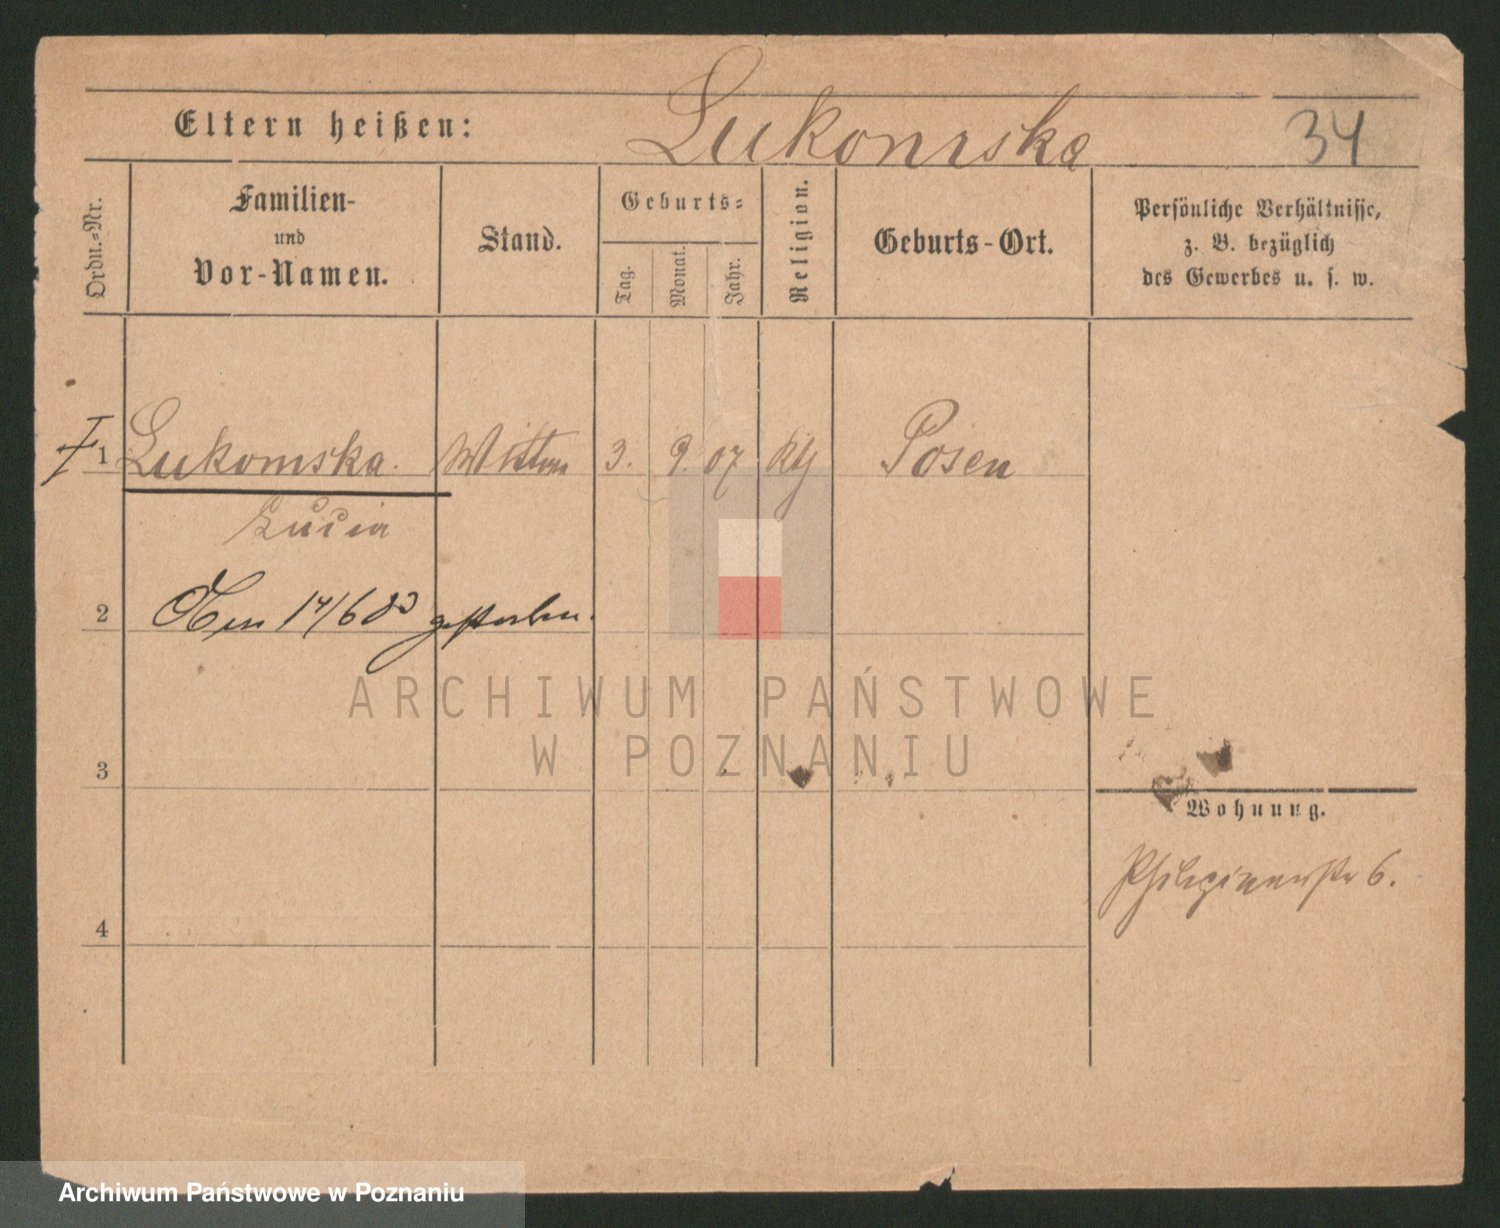 Eltern heißen: Lukomska 34
Ordn.-Nr.
Familien-
und
Vor-Namen.
Stand.
Geburts-
Tag.
Monat.
Jahr.
Religion.
Geburts-Ort.
Persönliche Verhältnisse,
z. B. bezüglich
des Gewerbes u. s. w.
1 Lukomska. 3. 9. 07 Posen
Lucia
2 Den 17/6 83 gestorben.
ARCHIWUM PAŃSTWOWE
W POZNANIU
3
Wohnung.
4
6.
Archiwum Państwowe w Poznaniu